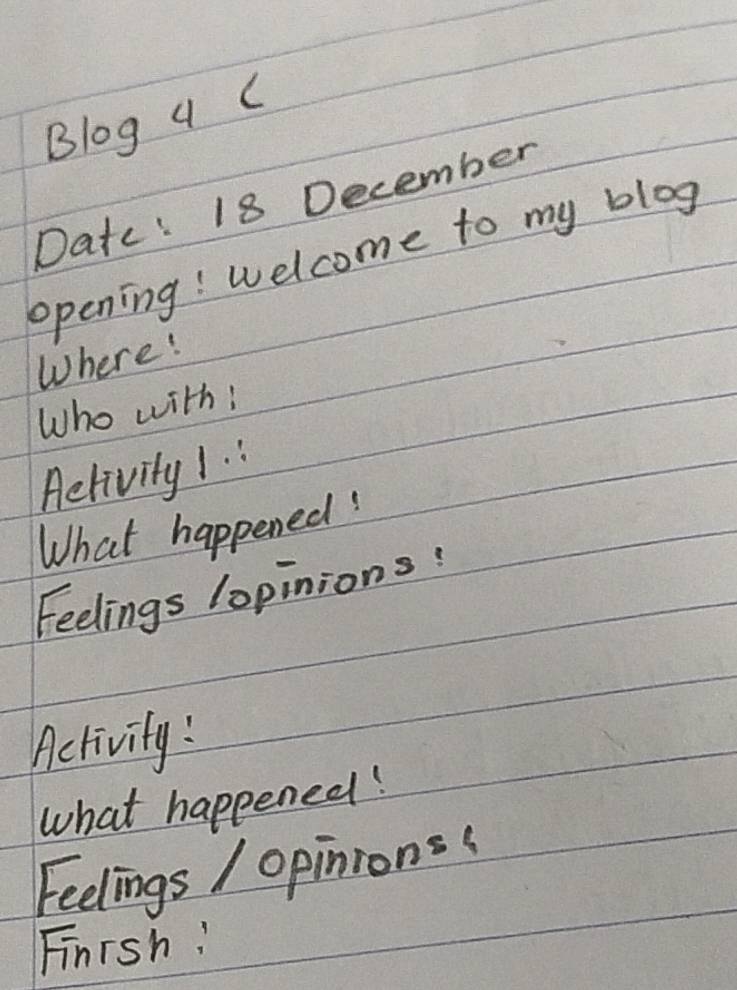 Blog 4 C
Date: 18 December
opening: Welcome to my blog
Where:
Who with:
Activity 1.:
What happened:
Feelings /opinions:
Activity:
what happened:
Feelings / opinions:
Finish: